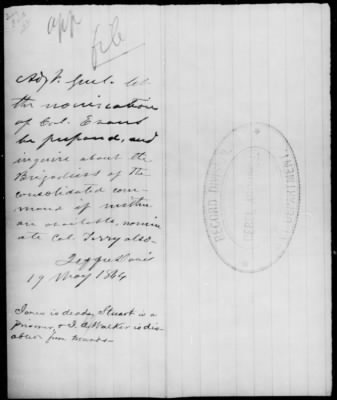 app
file
Adj't. Genl. let
the nomination
of Col. Evans
be prepared, and
inquire about the
Brigadiers of the
consolidated com-
mand if neither
are available, nomin-
ate Col. Terry also.
Jeffn Davis
19 May 1864
Jones is dead, Stuart is a
prisoner, & J. A. Walker is dis-
abled from wounds.
RECORD DIVISION
WAR DEPARTMENT